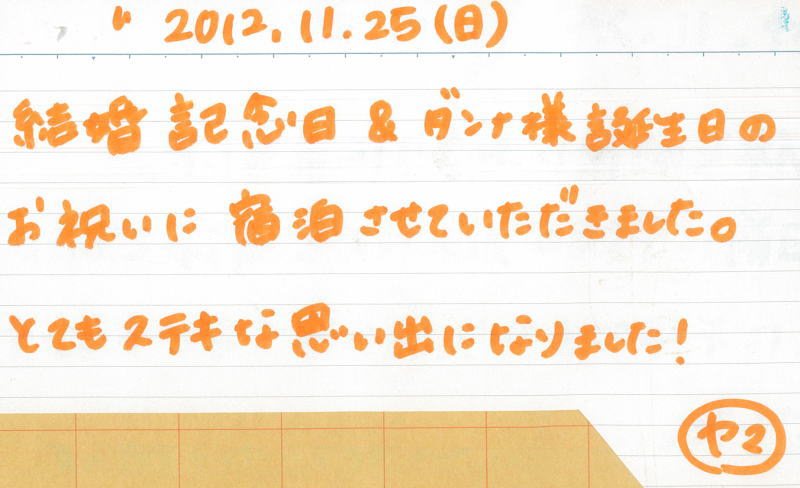 2012.11.25(日)
結婚記念日&ダンナ様誕生日の
お祝いに宿泊させていただきました。
とてもステキな思い出になりました!
ヤマ